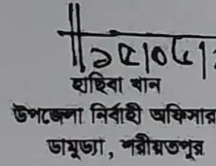 হাছিবা খান
উপজেলা নির্বাহী অফিসার
ডামুড্যা, শরীয়তপুর